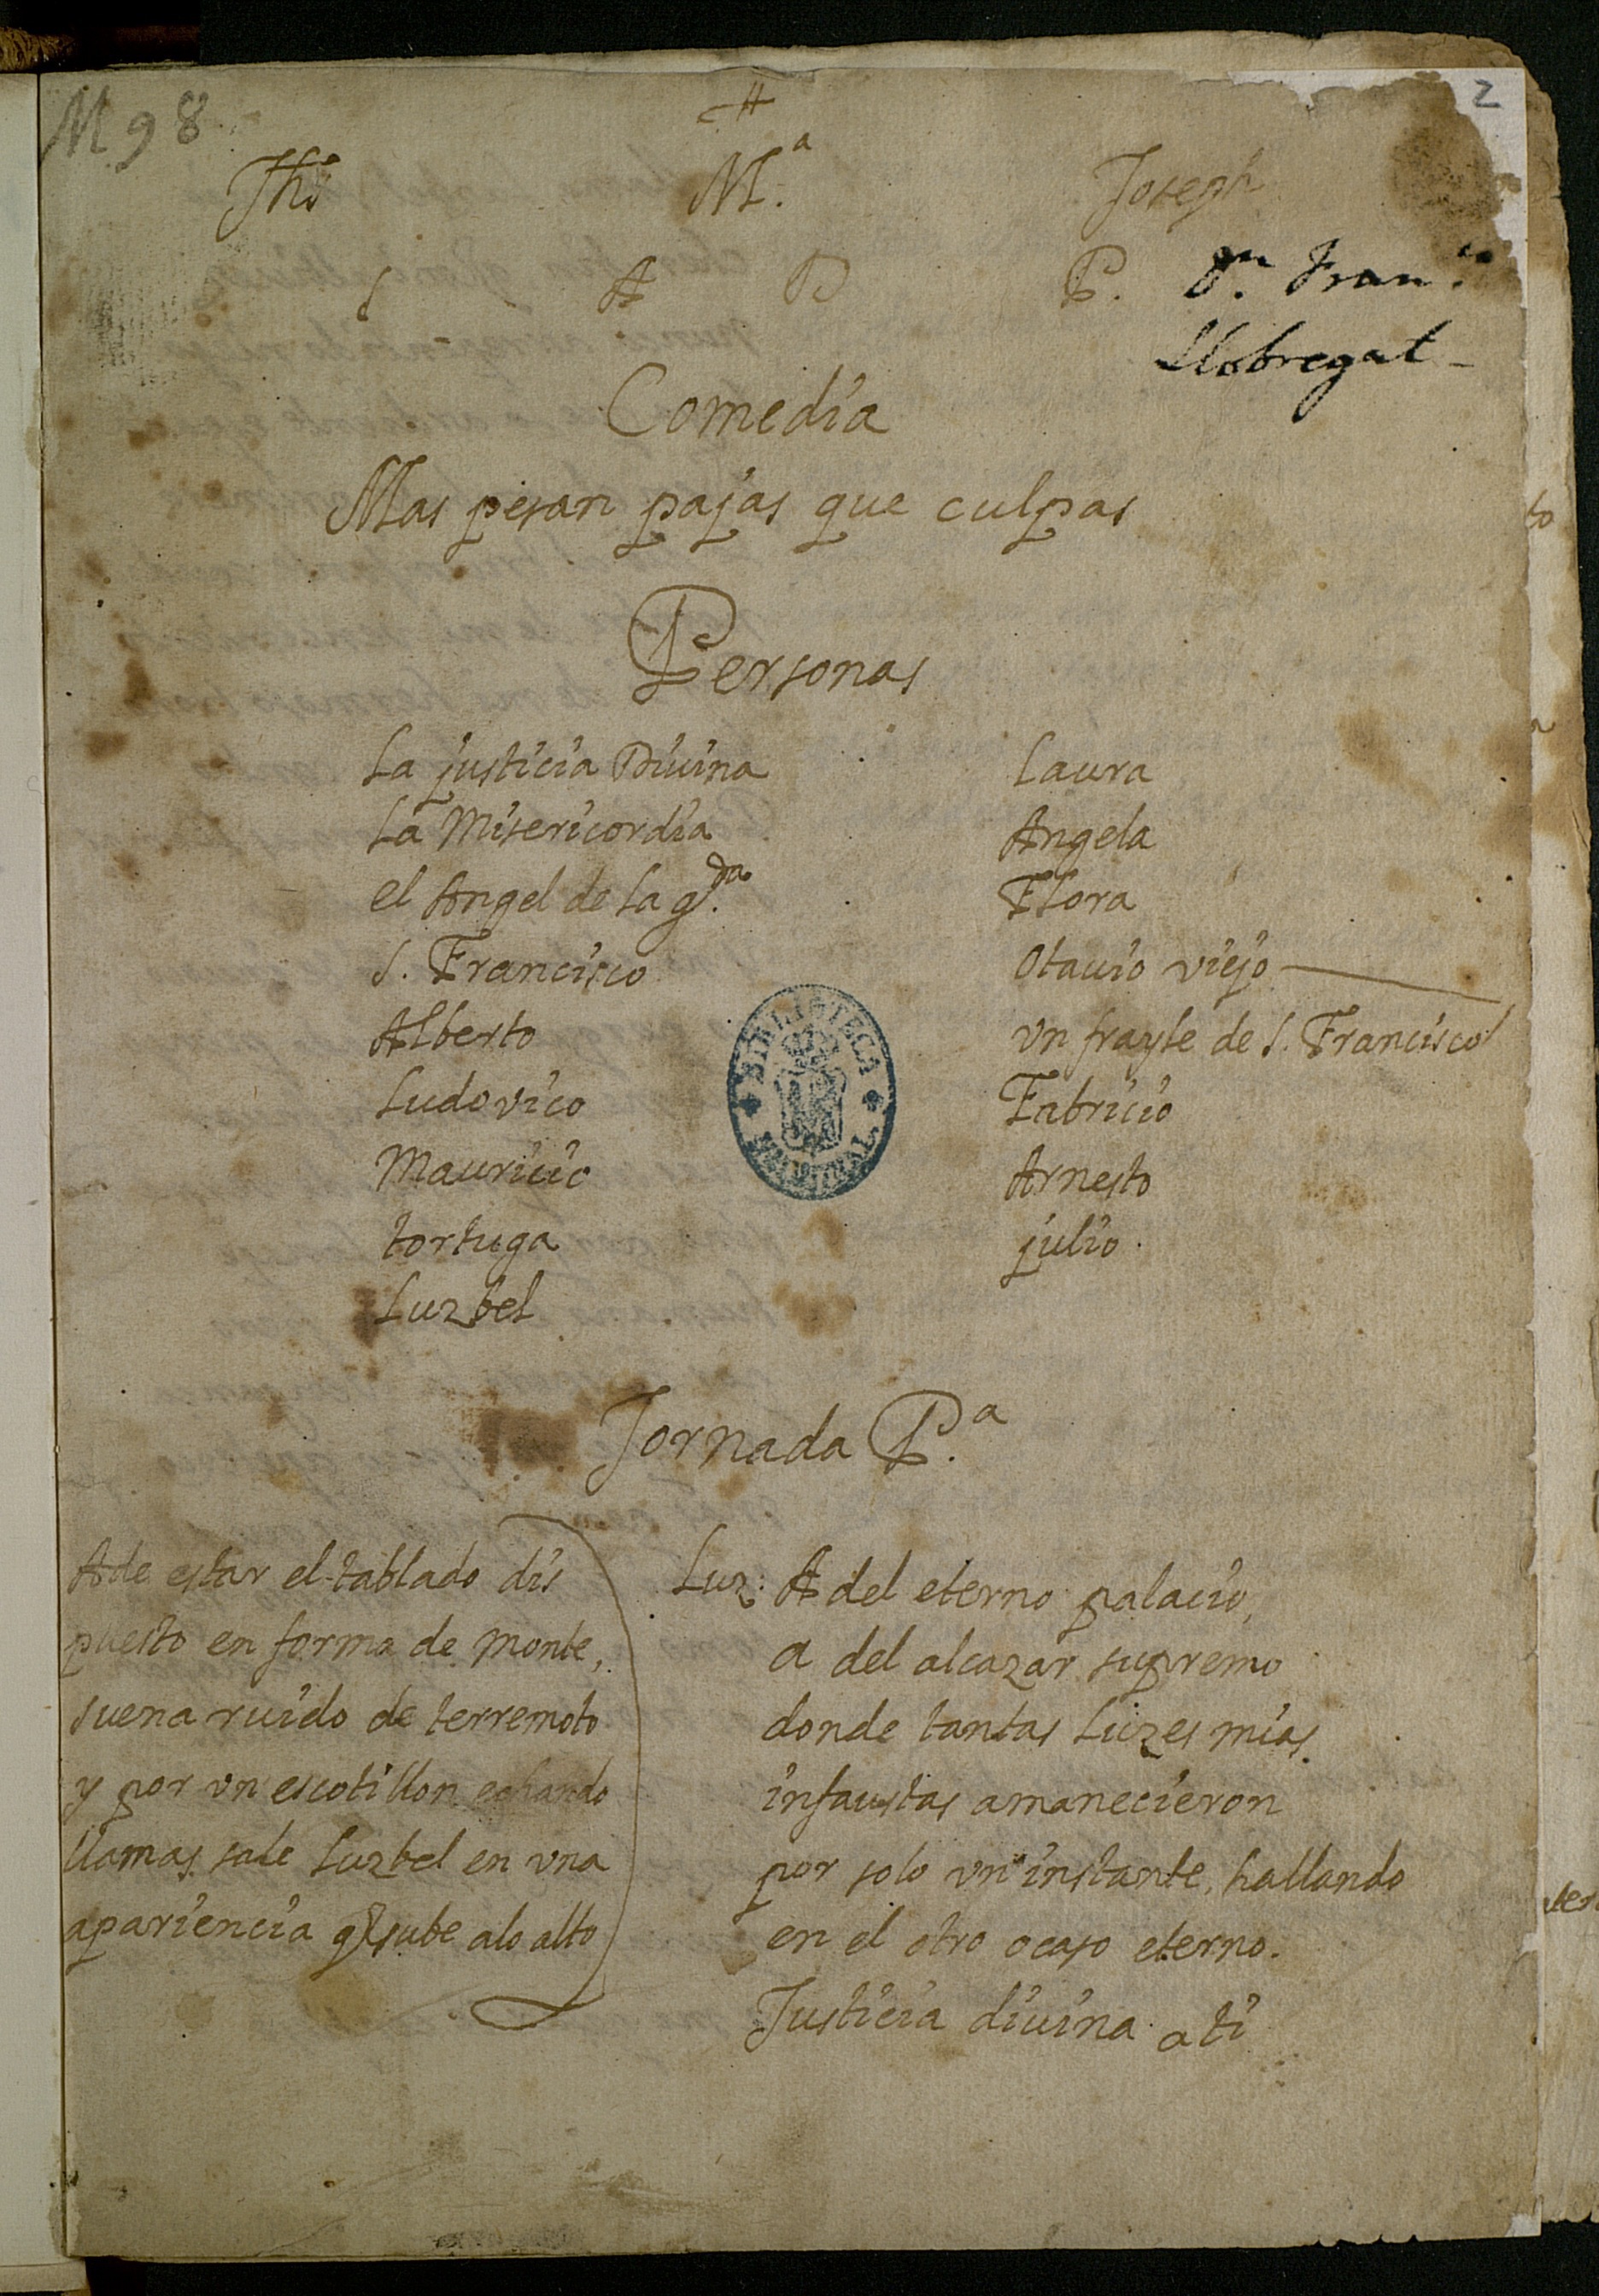 M 98
2
Jhs Mª. Joseph
S A D P. Dn. Franco
Llobregat
Comedia
Mas pesan pajas que culpas
Personas
La justicia Diuina
La Misericordia
el Angel de la g.da
S. Francisco
Alberto
Ludovico
Mauricio
tortuga
Luzbel
Laura
Angela
Flora
Otauio viejo
vn frayle de S. Francisco
Fabricio
Arnesto
julio.
BIBLIOTECA NACIONAL
Jornada P.ª
A de estar el tablado dis
puesto en forma de monte,
suena ruido de terremoto
y por vn escotillon echando
llamas sale Luzbel en vna
apariencia q sube alo alto
Luz: A del eterno palacio,
a del alcazar supremo
donde tantas Luzes mias
infaustas amanecieron
por solo vn instante, hallando
en el otro ocaso eterno.
Justicia diuina ati